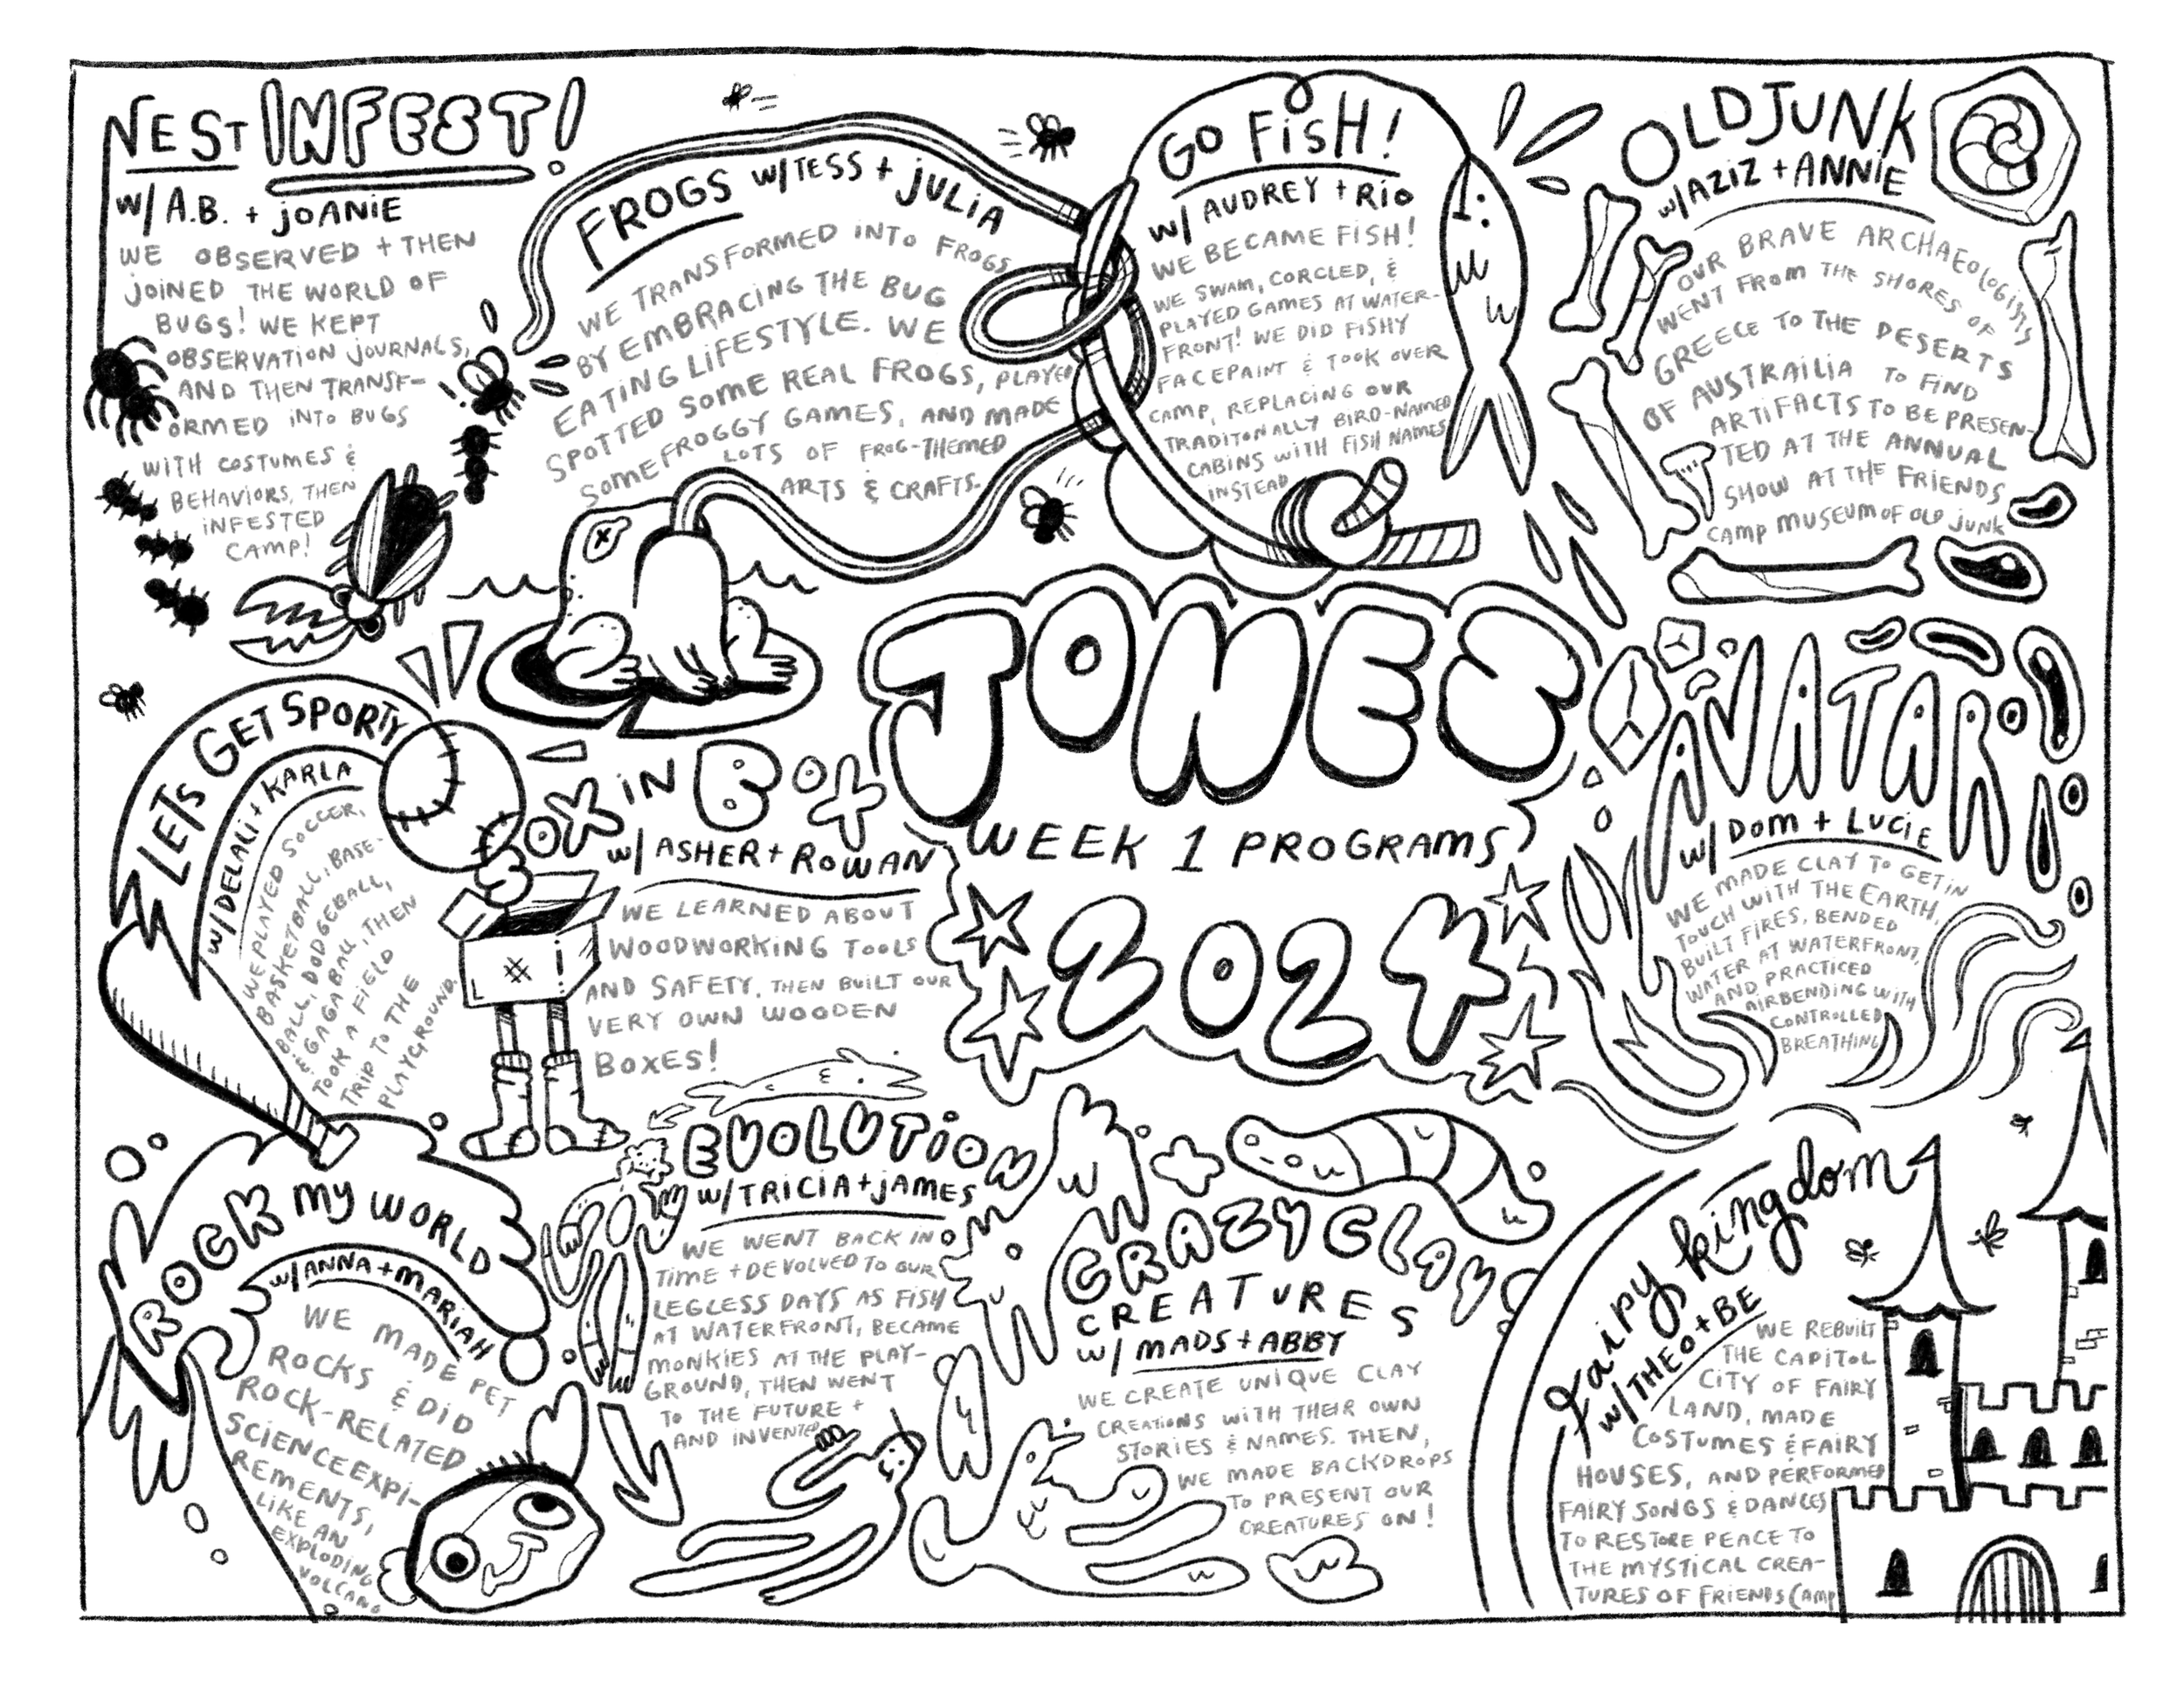 NEST INFEST!
W/ A.B. + JOANIE
WE OBSERVED + THEN
JOINED THE WORLD OF
BUGS! WE KEPT
OBSERVATION JOURNALS,
AND THEN TRANSF-
ORMED INTO BUGS
WITH COSTUMES &
BEHAVIORS, THEN
INFESTED
CAMP!
FROGS W/ TESS + JULIA
WE TRANSFORMED INTO FROGS
BY EMBRACING THE BUG
EATING LIFESTYLE. WE
SPOTTED SOME REAL FROGS, PLAYED
SOME FROGGY GAMES, AND MADE
LOTS OF FROG-THEMED
ARTS & CRAFTS.
GO FISH!
W/ AUDREY + RIO
WE BECAME FISH!
WE SWAM, CORCLED, &
PLAYED GAMES AT WATER-
FRONT! WE DID FISHY
FACEPAINT & TOOK OVER
CAMP, REPLACING OUR
TRADITONALLY BIRD-NAMED
CABINS WITH FISH NAMES
INSTEAD
OLD JUNK
W/ AZIZ + ANNIE
OUR BRAVE ARCHAEOLOGISTS
WENT FROM THE SHORES OF
GREECE TO THE DESERTS
OF AUSTRAILIA TO FIND
ARTIFACTS TO BE PRESEN-
TED AT THE ANNUAL
SHOW AT THE FRIENDS
CAMP MUSEUM OF OLD JUNK
JONES
WEEK 1 PROGRAMS
2024
LETS GET SPORTY
W/ DELALI + KARLA
WE PLAYED SOCCER,
BASKETBALL, BASE-
BALL, DODGEBALL,
& GAGA BALL, THEN
TOOK A FIELD
TRIP TO THE
PLAYGROUND.
BOX IN BOX
W/ ASHER + ROWAN
WE LEARNED ABOUT
WOODWORKING TOOLS
AND SAFETY, THEN BUILT OUR
VERY OWN WOODEN
BOXES!
AVATAR
W/ DOM + LUCIE
WE MADE CLAY TO GET IN
TOUCH WITH THE EARTH,
BUILT FIRES, BENDED
WATER AT WATERFRONT,
AND PRACTICED
AIRBENDING WITH
CONTROLLED
BREATHING
ROCK MY WORLD
W/ ANNA + MARIAH
WE MADE PET
ROCKS & DID
ROCK-RELATED
SCIENCE EXPI-
REMENTS,
LIKE AN
EXPLODING
VOLCANO
EVOLUTION
W/ TRICIA + JAMES
WE WENT BACK IN
TIME + DEVOLVED TO OUR
LEGLESS DAYS AS FISH
AT WATERFRONT, BECAME
MONKIES AT THE PLAY-
GROUND, THEN WENT
TO THE FUTURE +
AND INVENTED
CRAZY CLAY
CREATURES
W/ MADS + ABBY
WE CREATE UNIQUE CLAY
CREATIONS WITH THEIR OWN
STORIES & NAMES. THEN,
WE MADE BACKDROPS
TO PRESENT OUR
CREATURES ON!
Fairy kingdom
W/ THEO + BE
WE REBUILT
THE CAPITOL
CITY OF FAIRY
LAND, MADE
COSTUMES & FAIRY
HOUSES, AND PERFORMED
FAIRY SONGS & DANCES
TO RESTORE PEACE TO
THE MYSTICAL CREA-
TURES OF FRIENDS CAMP